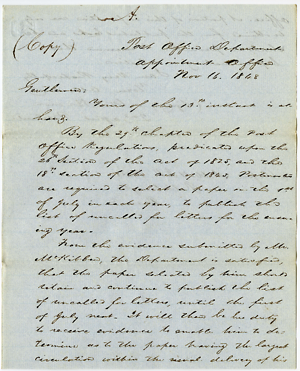 A.
(Copy)
Post Office Department
Appointment Office
Nov 16. 1848
Gentlemen:
Yours of the 13th instant is at
hand.
By the 29th chapter of the Post
Office Regulations, predicated upon the
section of the Act of 1825, and the
18th section of the act of Postmasters
are required to select a paper on the 1st
of July in each year, to publish the
list of uncalled for letters for the ensu-
ing year.
From the evidence submitted by Mr.
McKibbin, the Department is satisfied,
that the paper selected by him should
retain and continue to publish the list
of uncalled for letters, until the first
of July next. It will then be his duty
to receive evidence to enable him to de-
termine as to the paper having the largest
circulation within the usual delivery of his